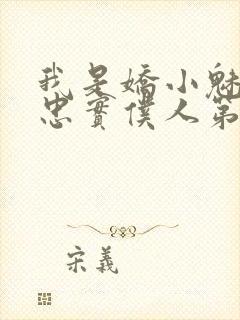 我是嬌小魅
忠實僕人第
宋義